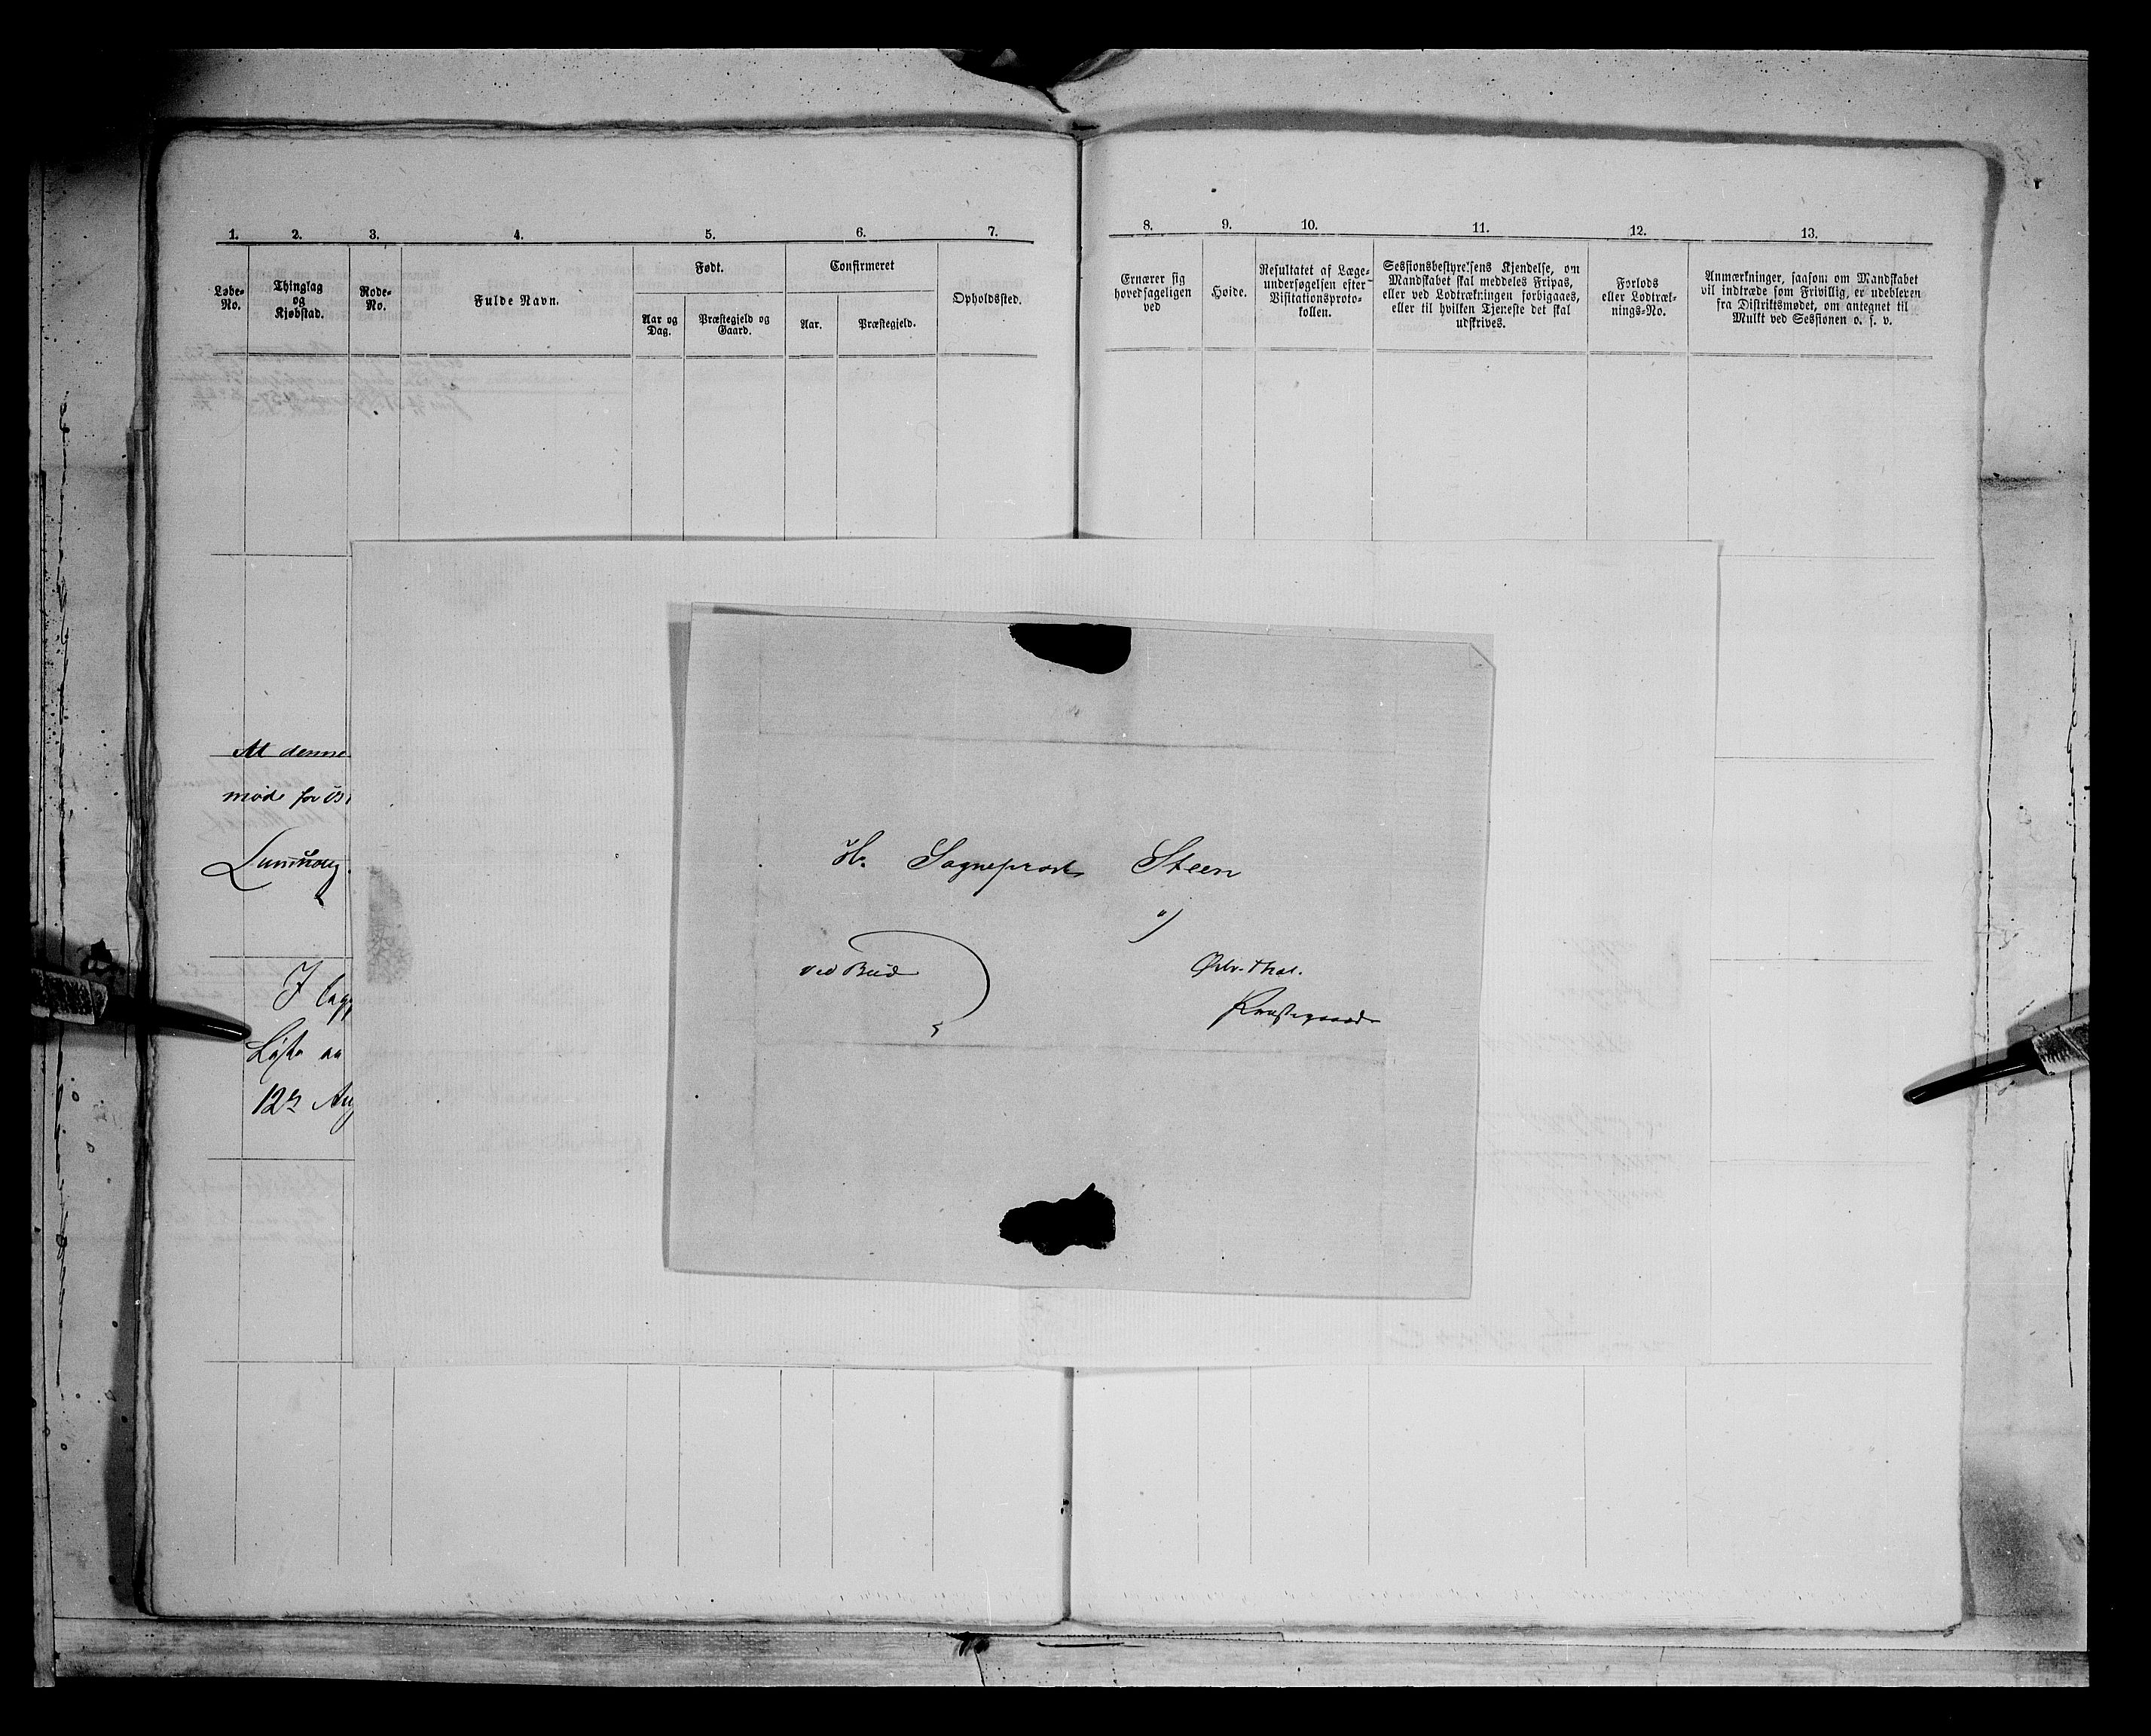 1. 2. 3. 4. 5. 6. 7.
Løbe-No.
Thinglag og Kjøbstad.
Rode-No.
Fulde Navn.
Født.
Aar og Dag.
Præstegjeld og Gaard.
Confirmeret
Aar.
Præstegjeld.
Opholdssted.
8. 9. 10. 11. 12. 13.
Ernærer sig
hovedsageligen
ved
Høide.
Resultatet af Læge-
undersøgelsen efter
Visitationsproto-
kollen.
Sessionsbestyrelsens Kjendelse, om
Mandskabet skal meddeles Fripas,
eller ved Lodtrækningen forbigaaes,
eller til hvilken Tjeneste det skal
udskrives.
Forlods
eller Lodtræk-
nings-No.
Anmærkninger, saasom om Mandskabet
vil indtræde som Frivillig, er udebleven
fra Distriktsmødet, om antegnet til
Mulkt ved Sessionen o. s. v.
At denne
møde for
I
Liste
12te Aug
Hr. Sogneprest Steen
ved Bud
Præstegaard